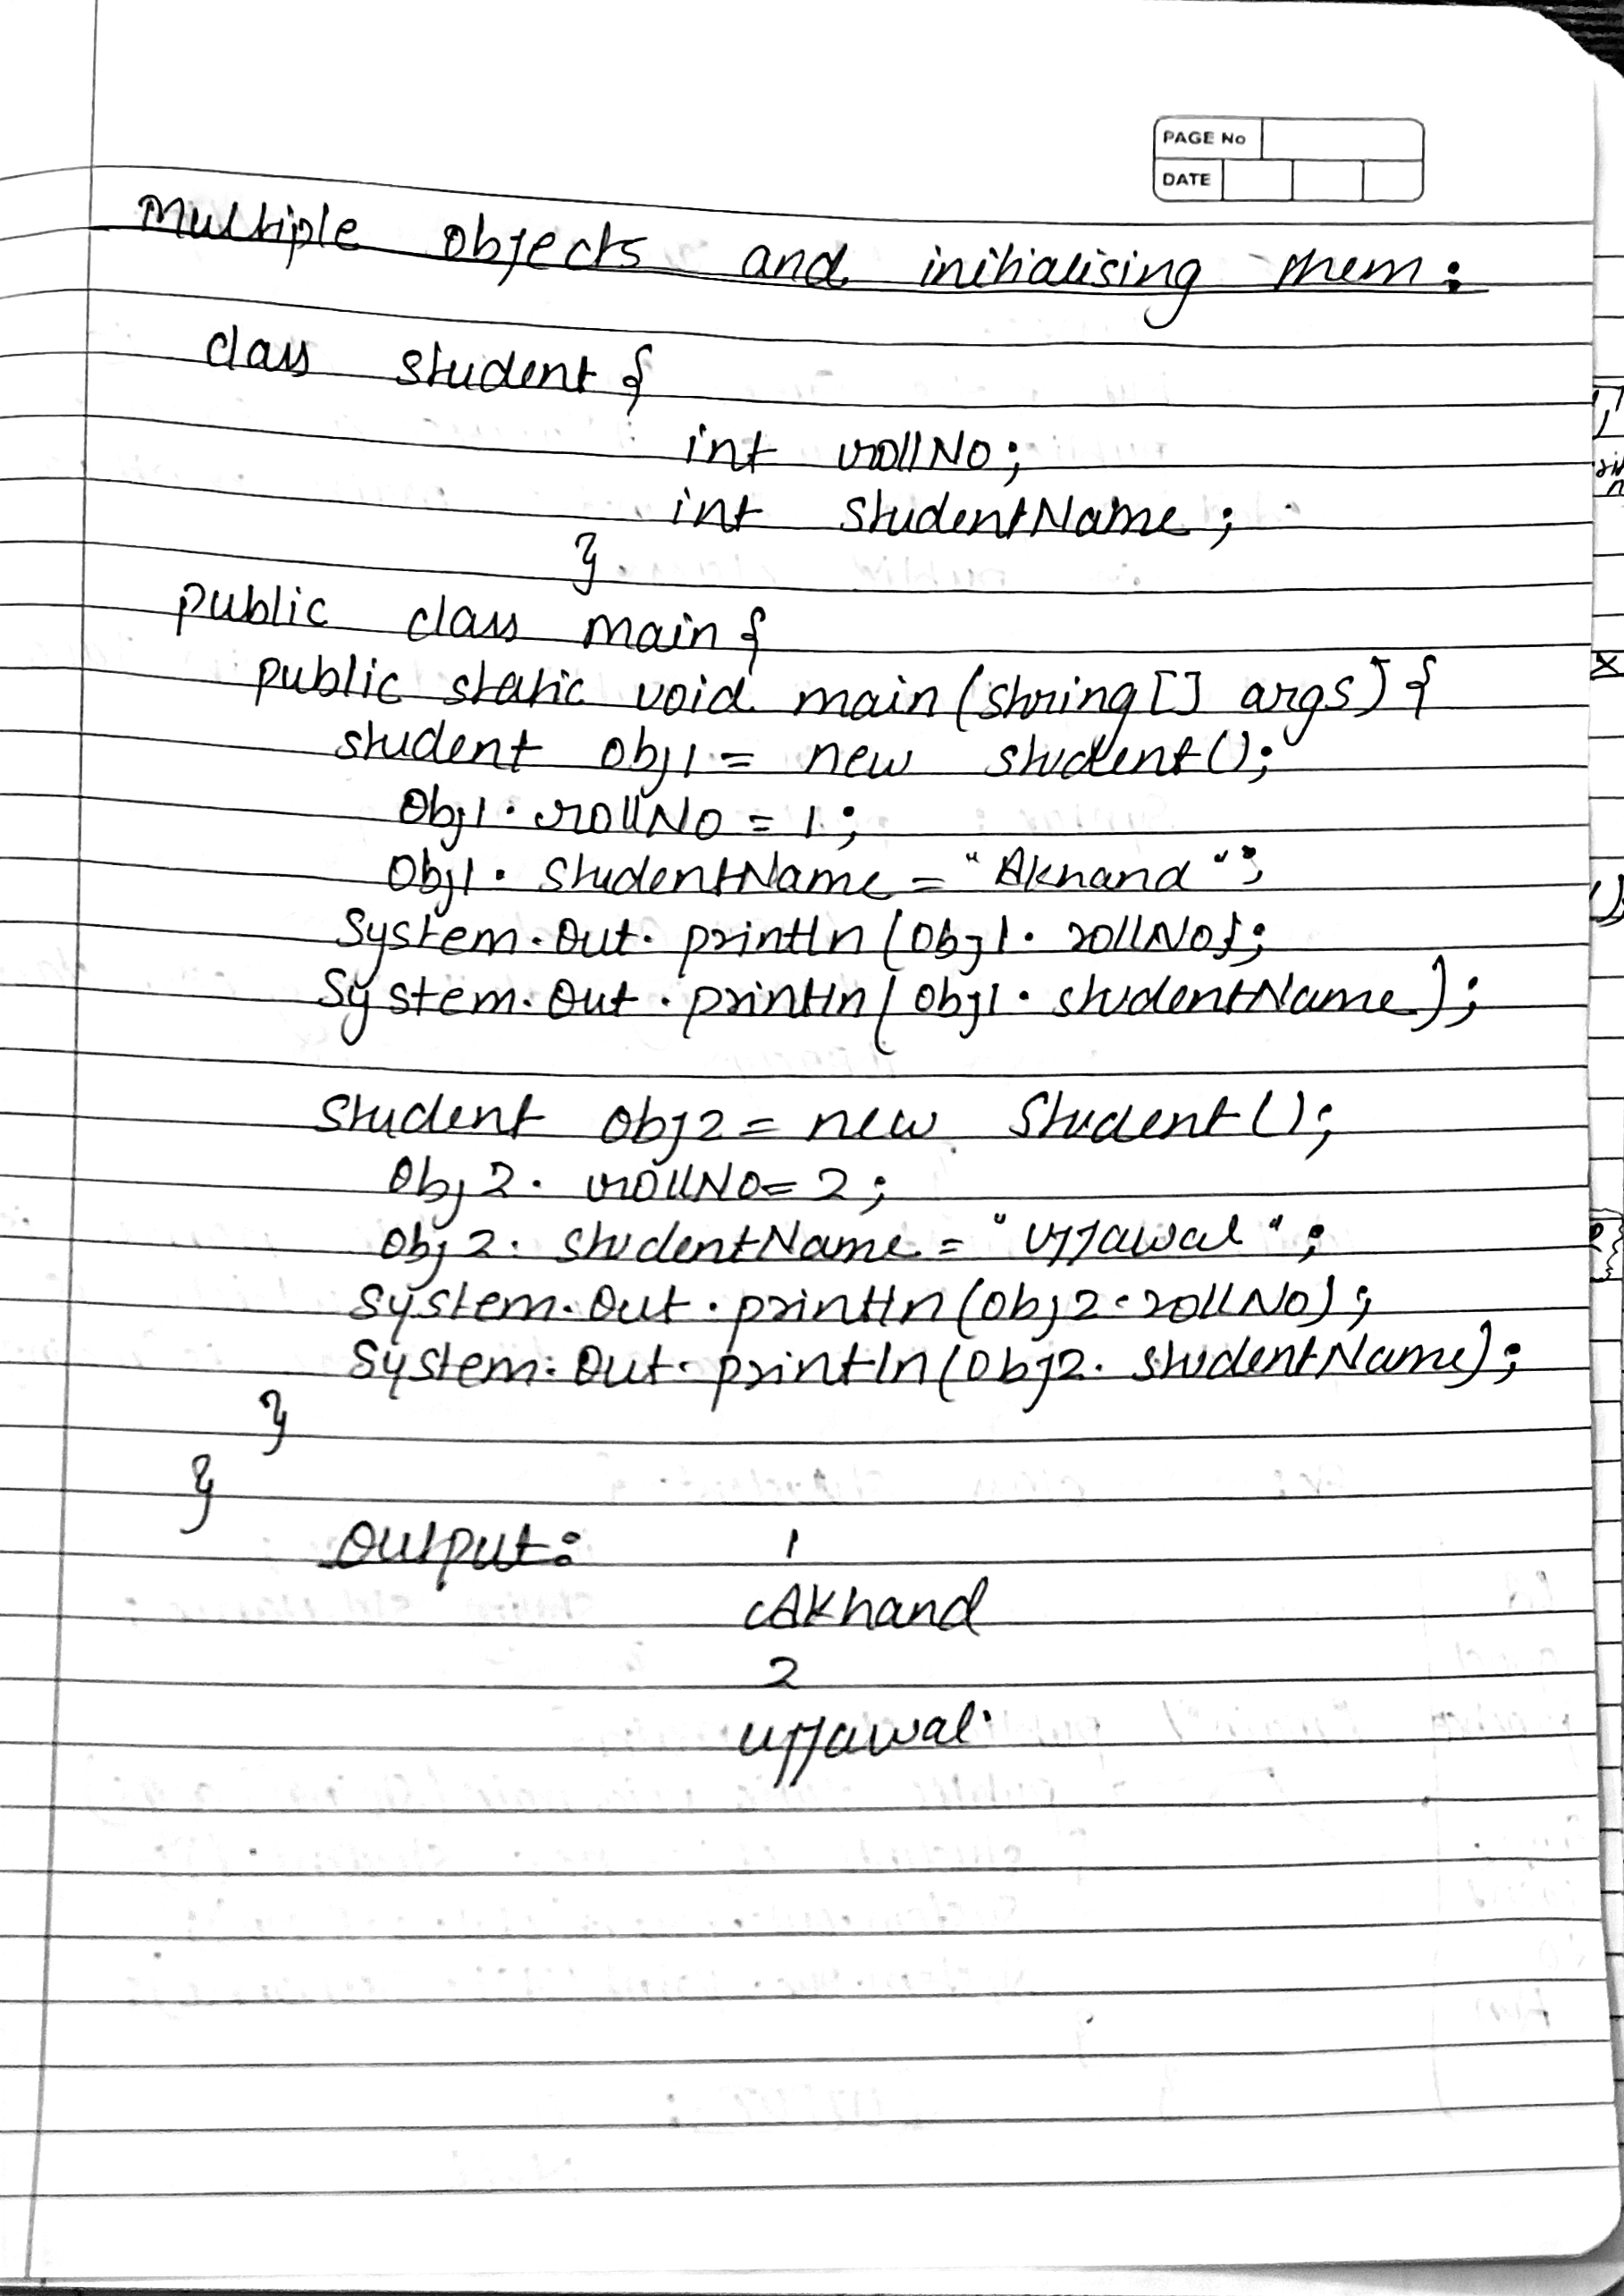 PAGE No
DATE
Multiple objects and initialising them:
class student {
int rollNo;
int studentName;
}
public class main {
public static void main (string [] args) {
student obj1 = new student();
Obj1. rollNo = 1;
Obj1. StudentName = "Akhand";
System.Out. println (Obj1. rollNo);
System.Out.println (obj1. studentName);
Student obj2 = new Student();
Obj2. rollNo = 2;
obj2. studentName = "Ujjawal";
System.Out.println (obj2.rollNo);
System.Out.println (Obj2. studentName);
}
}
Output: 1
Akhand
2
Ujjawal